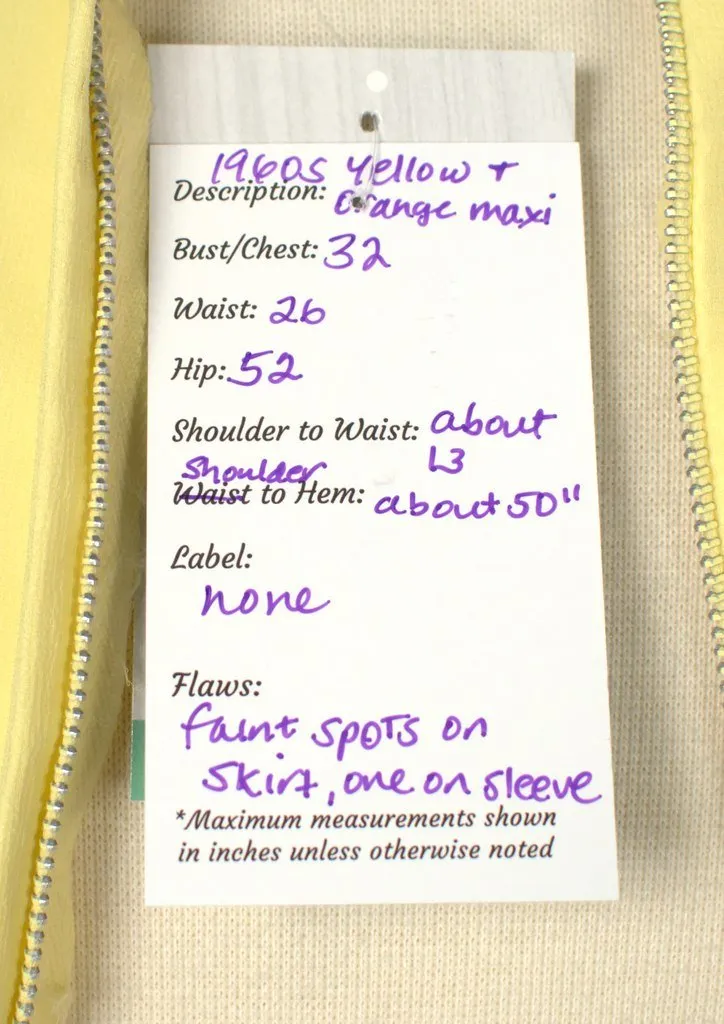 1960s yellow +
Description: Orange maxi
Bust/Chest: 32
Waist: 26
Hip: 52
Shoulder to Waist: about
13
shoulder
Waist to Hem: about 50"
Label:
none
Flaws:
faint spots on
skirt, one on sleeve
*Maximum measurements shown
in inches unless otherwise noted